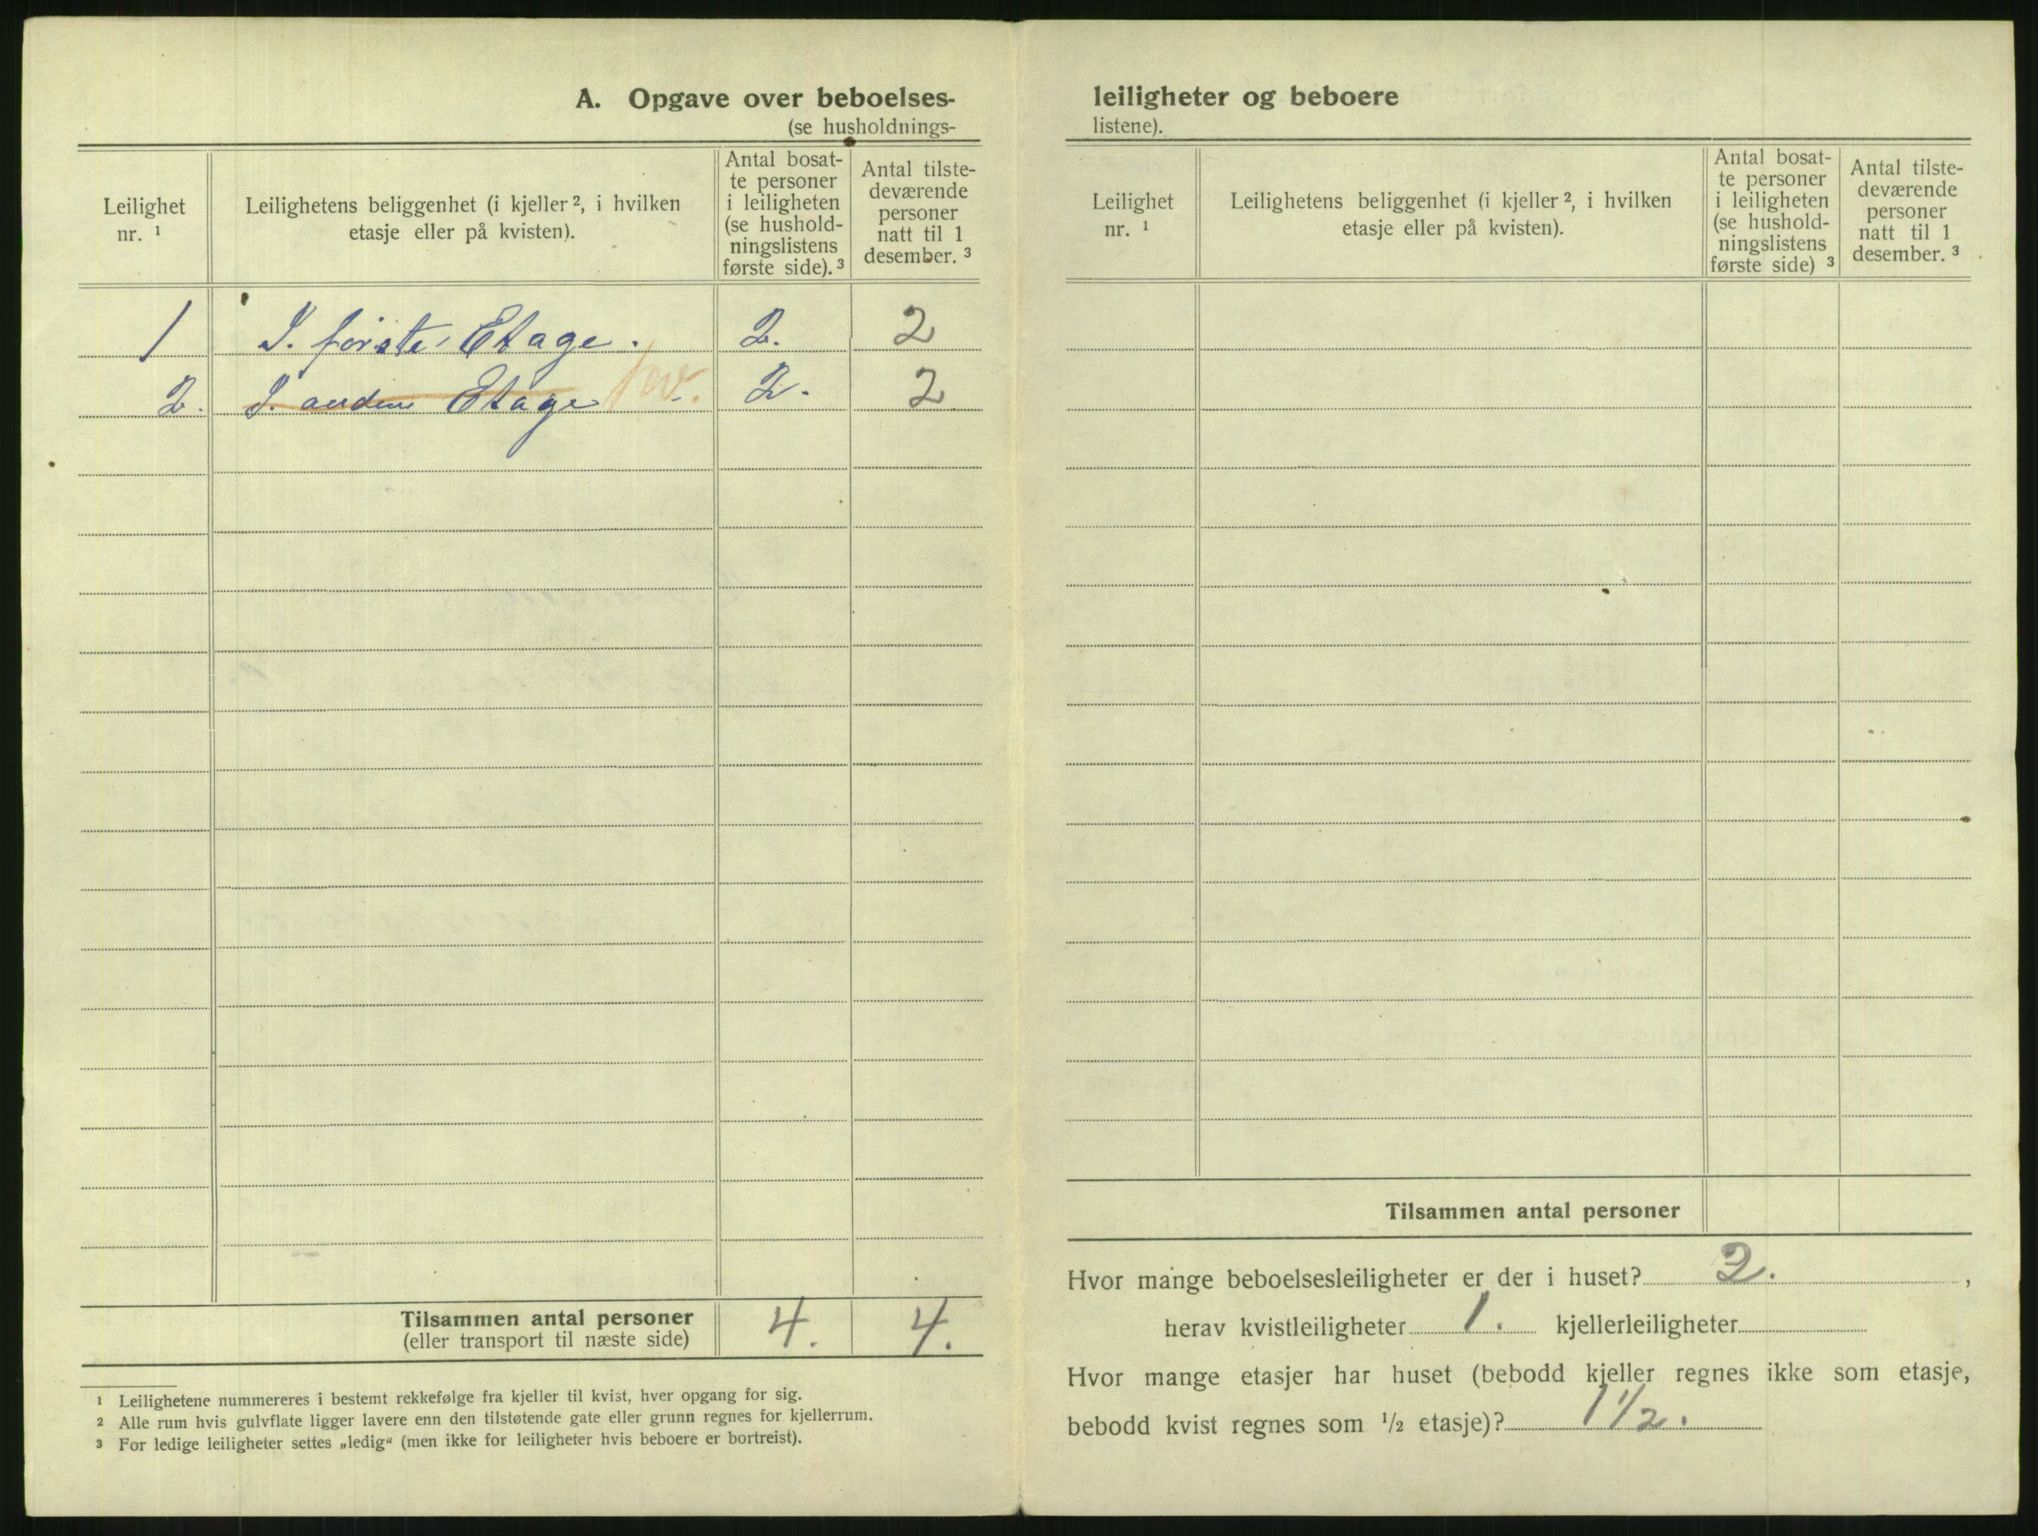 A. Opgave over beboelses-
(se husholdnings-
Leilighet nr. ¹
Leilighetens beliggenhet (i kjeller ², i hvilken
etasje eller på kvisten).
Antal bosat-
te personer
i leiligheten
(se hushold-
ningslistens
første side). ³
Antal tilste-
deværende
personer
natt til 1
desember. ³
1 I. første Etage. 2. 2
2. I. anden Etage 2. 2
Tilsammen antal personer 4. 4.
(eller transport til næste side)
¹ Leilighetene nummereres i bestemt rekkefølge fra kjeller til kvist, hver opgang for sig.
² Alle rum hvis gulvflate ligger lavere enn den tilstøtende gate eller grunn regnes for kjellerrum.
³ For ledige leiligheter settes „ledig“ (men ikke for leiligheter hvis beboere er bortreist).
leiligheter og beboere
listene).
Leilighet nr. ¹
Leilighetens beliggenhet (i kjeller ², i hvilken
etasje eller på kvisten).
Antal bosat-
te personer
i leiligheten
(se hushold-
ningslistens
første side) ³
Antal tilste-
deværende
personer
natt til 1
desember. ³
Tilsammen antal personer
Hvor mange beboelsesleiligheter er der i huset? 2. ,
herav kvistleiligheter 1. kjellerleiligheter
Hvor mange etasjer har huset (bebodd kjeller regnes ikke som etasje,
bebodd kvist regnes som ½ etasje)? 1 ½.